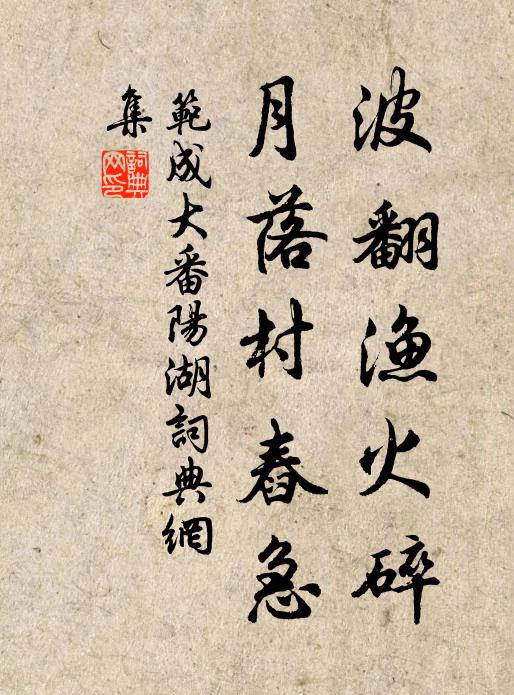 波翻漁火碎
月落村舂急
範成大番陽湖詞典網
集
詞典網印